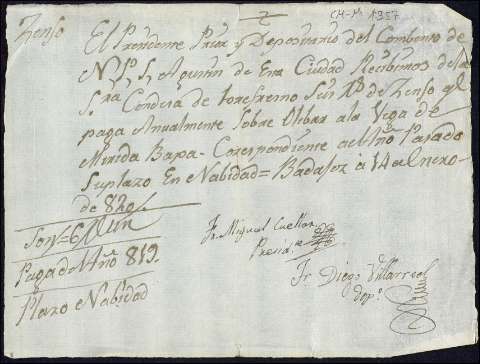 CM-M 1357
Zenso
El Presidente Prior y Depositario del Combento de
N. P. S. Agustin de Esta Ciudad Recibimos de la
S.ra Condesa de torefresno Seis Rs de Zenso q.e
paga Anualmente Sobre Olibar a la Vega de
Merida Baxa - Correspondiente al Año Pasado
Su plazo En Nabidad = Badajoz à 14 de Enero
de 820,,
Son = 6 Rs Vn
Paga del Año 819.
Plazo Nabidad
Fr. Miguel Cuellar,
Presid.te
Fr. Diego Villarreal
Dep.o